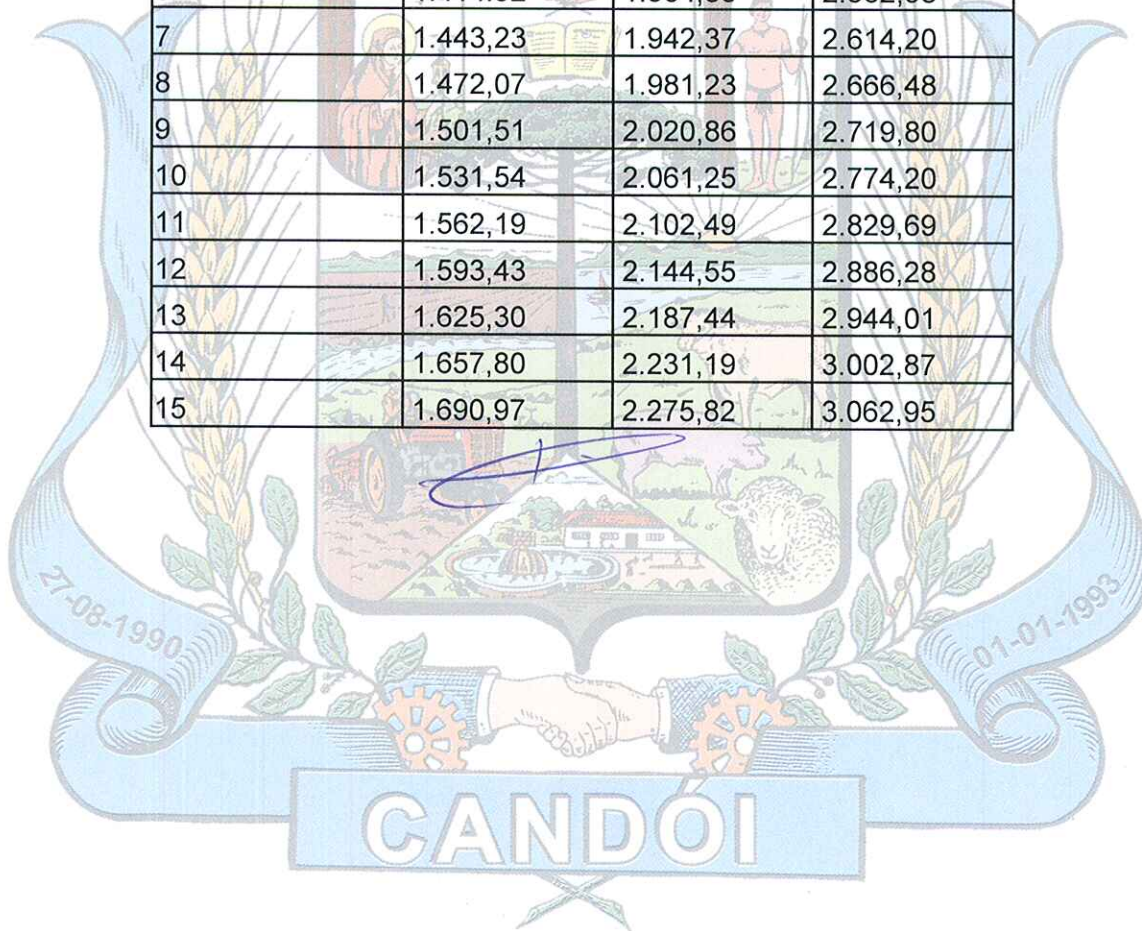 7 1.443,23 1.942,37 2.614,20
8 1.472,07 1.981,23 2.666,48
9 1.501,51 2.020,86 2.719,80
10 1.531,54 2.061,25 2.774,20
11 1.562,19 2.102,49 2.829,69
12 1.593,43 2.144,55 2.886,28
13 1.625,30 2.187,44 2.944,01
14 1.657,80 2.231,19 3.002,87
15 1.690,97 2.275,82 3.062,95
27-08-1990
01-01-1993
CANDÓI